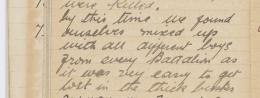 were killed.
by this time we found
7. ourselves mixed up
with all different boys
from every Battalion as
it was very easy to get
lost in the thick bushes